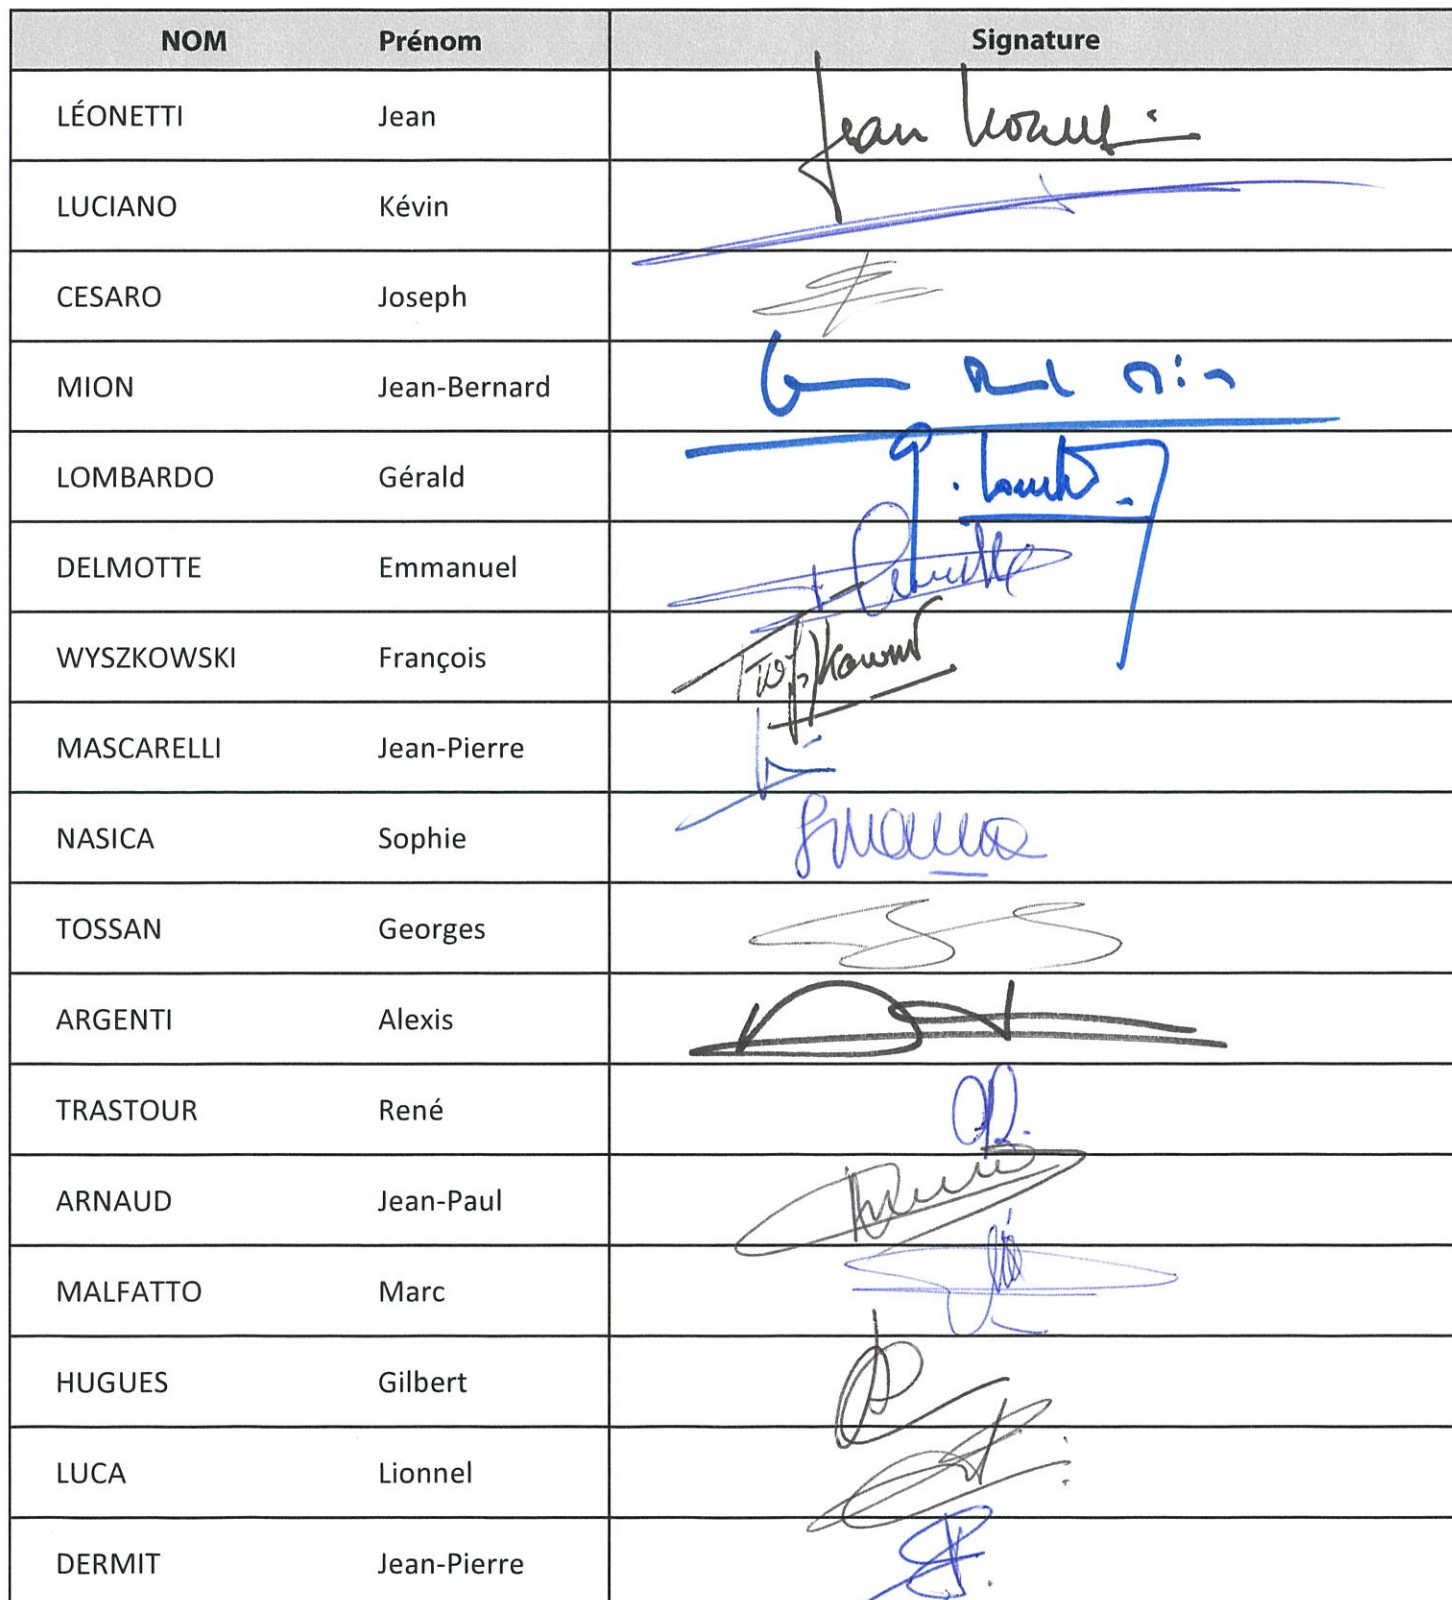 NOM Prénom Signature
LÉONETTI Jean Jean
LUCIANO Kévin
CESARO Joseph
MION Jean-Bernard
LOMBARDO Gérald
DELMOTTE Emmanuel
WYSZKOWSKI François
MASCARELLI Jean-Pierre
NASICA Sophie
TOSSAN Georges
ARGENTI Alexis
TRASTOUR René
ARNAUD Jean-Paul
MALFATTO Marc
HUGUES Gilbert
LUCA Lionnel
DERMIT Jean-Pierre